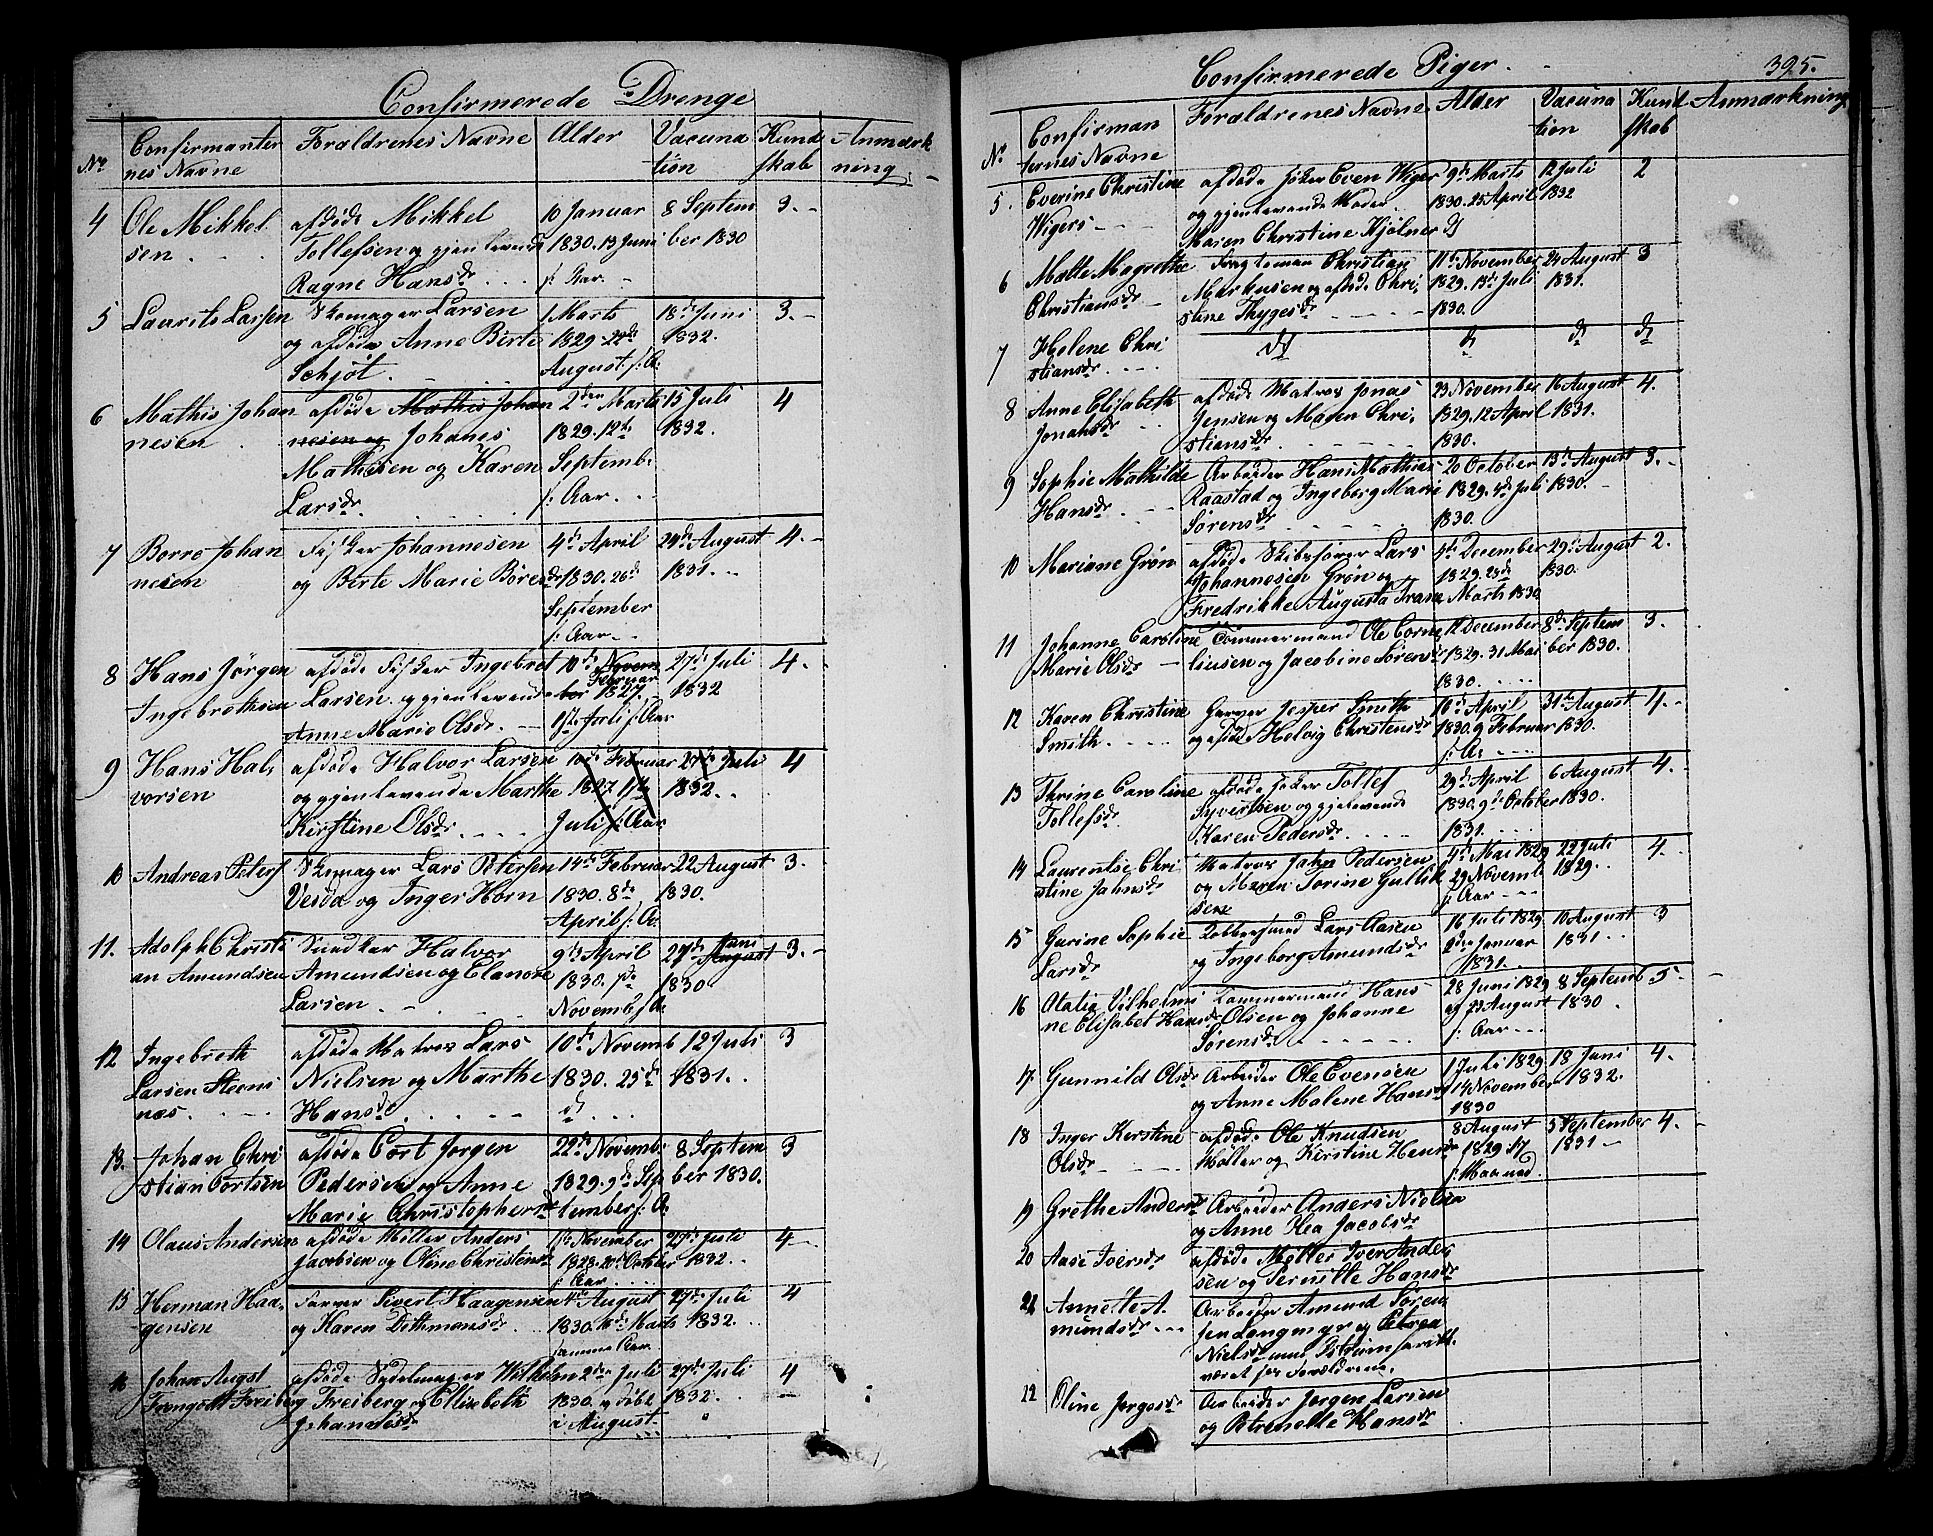 Confirmerede Drenge
No
Confirmanter
nes Navne
Forældrenes Navne
Alder
Vacuna
tion
Kund
skab
Anmærk
ning
4
Ole Mikkel
sen
afdøde Mikkel
Tollefsen og gjenlevende
Ragne Hansdr
10 Januar
1830. 13 Juni
s: Aar
8 Septem
ber 1830
3.
5
Laurits Larsen
Skomager Larsen
og afdøde Anne Birte
Schjøt
1 Marts
1829
August s: A:
18de Juni
1832.
3.
6
Mathis Johan
nesen
afdøde Mathis Johan
nesen og Johanes
Mathesen og Karen
Larsdr
2den Marts
1829. 12te
Septemb:
s: Aar.
15 Juli
1832.
4
7
Borre Johan
nesen
Fisker Johannesen
og Birte Marie Børesdr
4de April
1830. 26de
September
s: Aar
24de August
1831.
4.
8
Hans Jørgen
Ingebrethsen
afdøde Fisker Ingebret
Larsen og gjenlevende
Anne Marie Olsdr
10de Novem
Februar
ber 1827.
1ste Juli s: Aar
27de Juli
1832
4.
9
Hans Hal,
vorsen
afdøde Halvor Larsen
og gjenlevende Marthe
Kirstine Olsdr
10de Februar
1827. 1ste
Juli s: Aar
27de Juli
1832.
4
10
Andreas Peters
Skomager Lars Petersen
Vesda og Inger Horn
14de Februar
1830. 8de
April s: A:
22 August
1830.
3.
11.
Adolph Christi
an Amundsen
Halvor
Amundsen og Elanore
Larsen
9de April
1830.
Novemb s: A:
Juni
27de August
1830
3.
12
Ingebreth
Larsen Steens
næs
afdøde Matros Lars
Nielsen og Marthe
Hansdr
10de Novemb
1830. 25de
d
12 Juli
1831.
3
13.
Johan Chri
stian Cortsen
afdøde Cort Jorgen
Pedersen og Anne
Marie Christophersdr
22de Novemb:
1829. 9de Sep
tember s: A:
8 Septem
ber 1830.
3
14
Olaus Andersen
afdøde Møller Anders
Jacobsen og Oline Christensdr
November
October
s: Aar
27de Juli
1832.
4
15
Herman Haa,
gensen
Farver Sivert Haagensen
og Karen Dithmansdr
4de August
1830. Marts
samme Aar.
27de Juli
1832.
4
16
Johan Augst
Freiberg
afdøde Wilhelm
Freiberg og Ellisebeth
Johannesdr
2den Juli
1830. døbt
i August
27de Juli
1832.
4
Confirmerede Piger.
395.
No
Confirman
ternes Navne
Forældrenes Navne
Alder
Vacuna
tion
Kund
skab
Anmærkning
5.
Everine Christine
Wigers
afdøde Even Wiger
og gjenlevende Moder
Maren Christine Kjølner
9de Marts
1830. 25 April
12 Juli
1832
2
6
Malte Magrethe
Christiansdr
Christian
Markusen og afdøde Chri,
stine Thygesdr
11te November
1829. 13de Juli
1830.
24 August
1831.
3
7
Helene Chri
stiansdr
d
d
d
d
8
Anne Elisabeth
Jonasdr
afdøde Matros Jonas
Jensen og Maren Chri,
stiansdr
23 November
1829. 12 April
1830.
16 August
1831.
4.
9
Sophie Mathilde
Hansdr
Arbeider Hans Mathias
Raastad og Ingeborg Marie
Sørensdr
20 October
1829. 4de Juli
1830.
13de August
1830.
3.
10
Mariane Grøn
afdøde Skibsfører Lars
Johannesen Grøn og
Fredrikke Augusta Trane
4de December
1829. 28de
Marts 1830
29de August
1830.
2.
11
Johanne Caroline
Marie Olsdr
Tømmermand Ole Corne
liusen og Jacobine Sørensdr
12 December
1829. 31 Mai
1830.
8de Septem
ber 1830.
3.
12
Karen Christine
Smith
Garver Jesper Smith
og afdøde Helvig Christensdr
16de April
1830. 9 Februar
s: A:
31te August
1830.
4.
13
Thrine Caroline
Tollefsdr
afdøde Tollef
Syversen og gjenlevende
Karen Pedersdr
29de April
1830. 9de October
1831.
6 August
1830.
4.
14
Laurentse Chri
stine Jahnsdr
Matros Jahn Pedersen
og Maren Torine Gullik
sen
4de Mai 1829
29 Novemb
s: Aar
22 Juli
1829.
4.
15
Gurine Sophie
Larsdr
Lars Aasen
og Ingeborg Amundsdr
16 Juli 1829.
2den Januar
1831.
10 August
1831.
3
16
Otalie Vilhelmi
ne Elisabet Hansdr
Tømmermand Hans
Olsen og Johanne
Sørensdr
28 Juni 1829
og 23 August
s: Aar
8 Septemb
1830
5
17.
Gunnild Olsdr
Arbeider Ole Evensen
og Anne Malene Hansdr
1 Juli 1829.
14 November
1830
18 Juni
1832.
4.
18
Inger Kerstine
Olsdr
afdøde Ole Knudsen
Møller og Kirstine Hansdr
8 August
1829. 17
s: Maaned.
5 September
1831
4.
19
Grethe Andersdr
Arbeider Anders Nielsen
og Anne Lea Jacobsdr
20
Aase Iversdr
afdøde Møller Iver Ander
sen og Pernille Hansdr
21
Annette A.
mundsdr
Arbeider Amund Søren,
sen Langmyr og Petrea
Nielsdr
været for Forældrene.
22
Oline Jorgensdr
Arbeider Jorgen Larsen
og Petronelle Hansdr